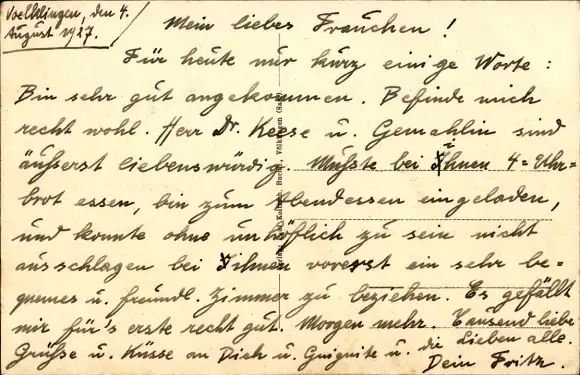 Voelklingen, den 4.
August 1927.
Mein liebes Frauchen!
Für heute nur kurz einige Worte:
Bin sehr gut angekommen. Befinde mich
recht wohl. Herr Dr. Keese u. Gemahlin sind
äußerst liebenswürdig. Mußte bei Ihnen 4=Uhr=
brot essen, bin zum Abendessen eingeladen,
und konnte ohne unhöflich zu sein nicht
ausschlagen bei ihnen vorerst ein sehr be-
quemes u. freundl. Zimmer zu beziehen. Es gefällt
mir für's erste recht gut. Morgen mehr. Tausend liebe
Grüße u. Küsse an Dich u. u. die Lieben alle.
Dein Fritz.